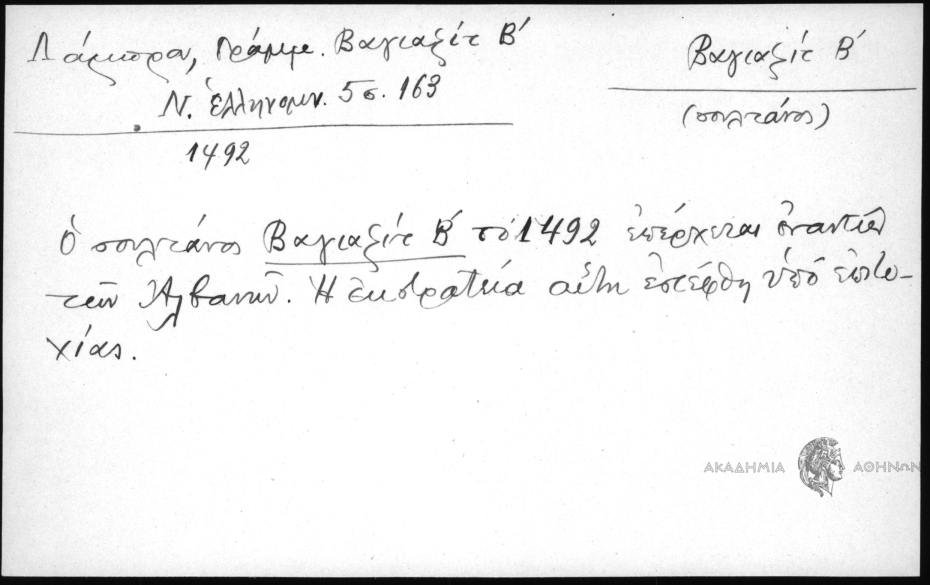 Λάμπρου, Γράμμ. Βαγιαζίτ Β´
Ν. Ἑλληνομν. 5 σ. 163
1492
Βαγιαζίτ Β´
(σουλτάνος)
Ὁ σουλτάνος Βαγιαζίτ Β´ τὸ 1492 ἐπέρχεται ἐναντίον
τῶν Ἀλβανῶν. Ἡ ἐκστρατεία αὕτη ἐστέφθη ὑπὸ ἐπιτυ-
χίας.
ΑΚΑΔΗΜΙΑ ΑΘΗΝΩΝ